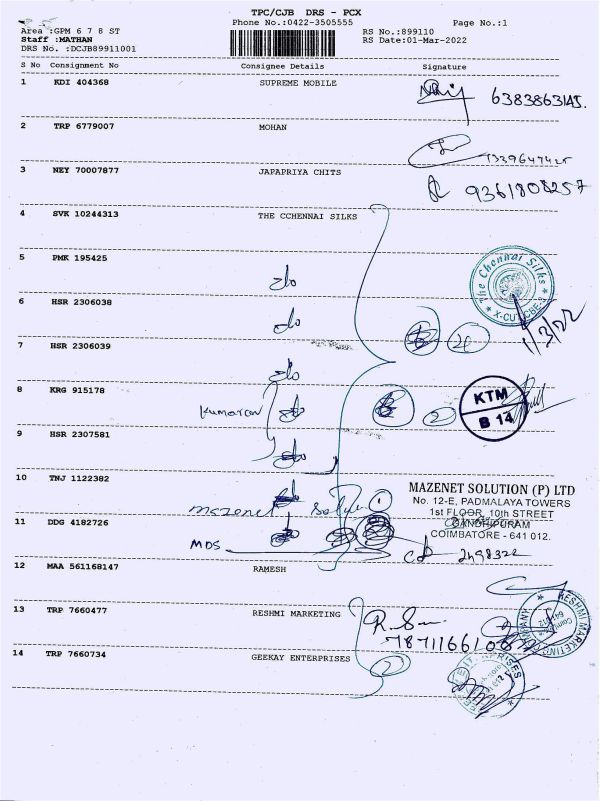 TPC/CJB DRS - PCX
Area :GPM 6 7 8 ST
Phone No.:0422-3505555
Page No.:1
Staff :MATHAN
RS No.:899110
DRS No. :DCJB89911001
RS Date:01-Mar-2022
S No Consignment No Consignee Details Signature
1 KDI 404368 SUPREME MOBILE
6383863145.
2 TRP 6779007 MOHAN
3 NEY 70007877 JAPAPRIYA CHITS
9361808257
4 SVK 10244313 THE CCHENNAI SILKS
5 PMK 195425
The Chennai Silks
6 HSR 2306038
1/3/22
7 HSR 2306039
8 KRG 915178
Kumaran
KTM
B 14
9 HSR 2307581
10 TNJ 1122382
MAZENET SOLUTION (P) LTD
No. 12-E, PADMALAYA TOWERS
mazenet
1st FLOOR, 10th STREET
11 DDG 4182726
GANDHIPURAM
COIMBATORE - 641 012.
MDS
12 MAA 561168147 RAMESH
13 TRP 7660477 RESHMI MARKETING
RESHMI MARKETING COMPANY
14 TRP 7660734 GEEKAY ENTERPRISES